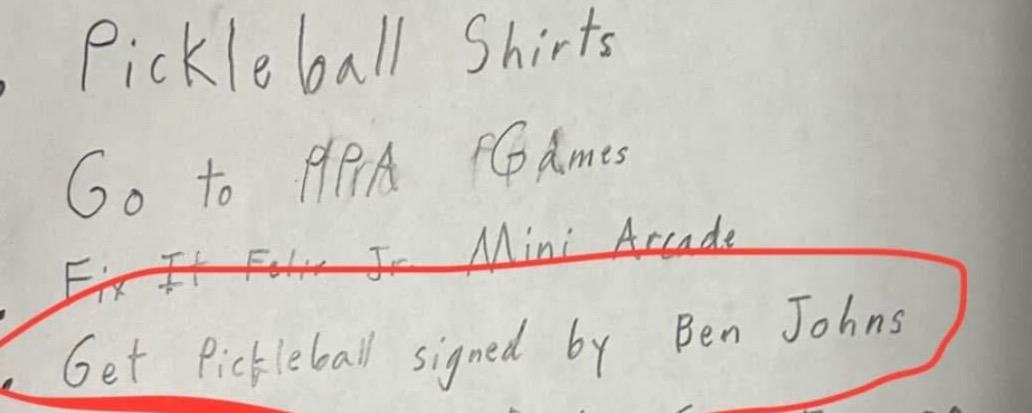 Pickleball Shirts
Go to PPA Games
Fix It Felix Jr. Mini Arcade
Get Pickleball signed by Ben Johns